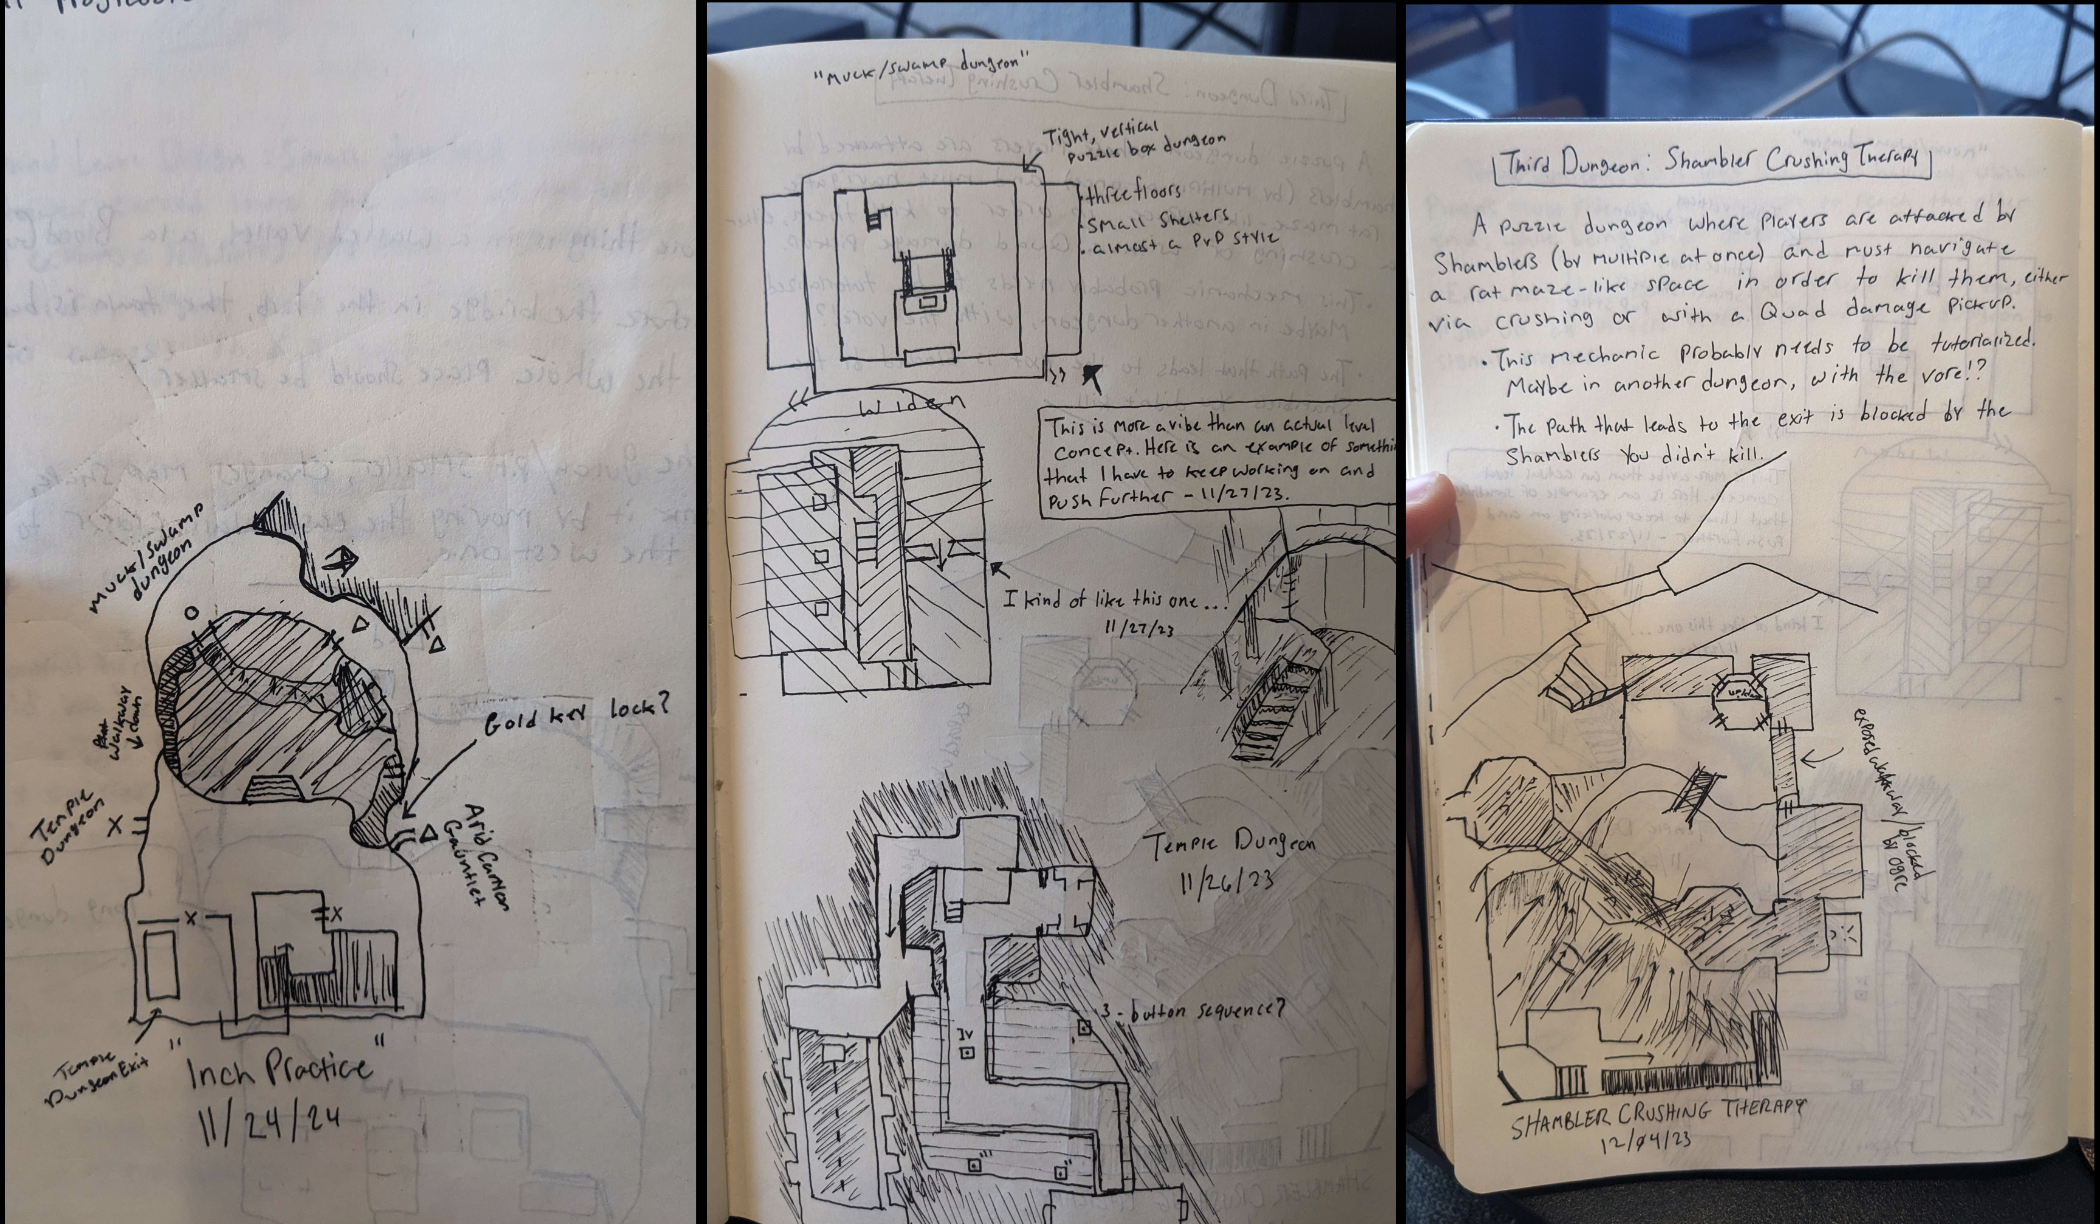 muck/swamp
dungeon
Walkway
down
Temple
Dungeon
X
X
X
Gold key lock?
Arid Canyon
Gauntlet
Temple
Dungeon Exit
"Inch Practice"
11/24/24
"muck/swamp dungeon"
Tight, vertical
puzzle box dungeon
· three floors
· small shelters
· almost a PvP style
Widen
This is more a vibe than an actual level
concept. Here is an example of somethin
that I have to keep working on and
push further - 11/27/23.
I kind of like this one...
11/27/23
Temple Dungeon
11/26/23
3-button sequence?
Third Dungeon: Shambler Crushing Therapy
A puzzle dungeon where players are attacked by
Shamblers (by multiple at once) and must navigate
a rat maze-like space in order to kill them, either
via crushing or with a Quad damage pickup.
· This mechanic probably needs to be tutorialized.
Maybe in another dungeon, with the vore!?
· The path that leads to the exit is blocked by the
Shamblers you didn't kill.
exposed walkway/blocked
by ogre
SHAMBLER CRUSHING THERAPY
12/04/23